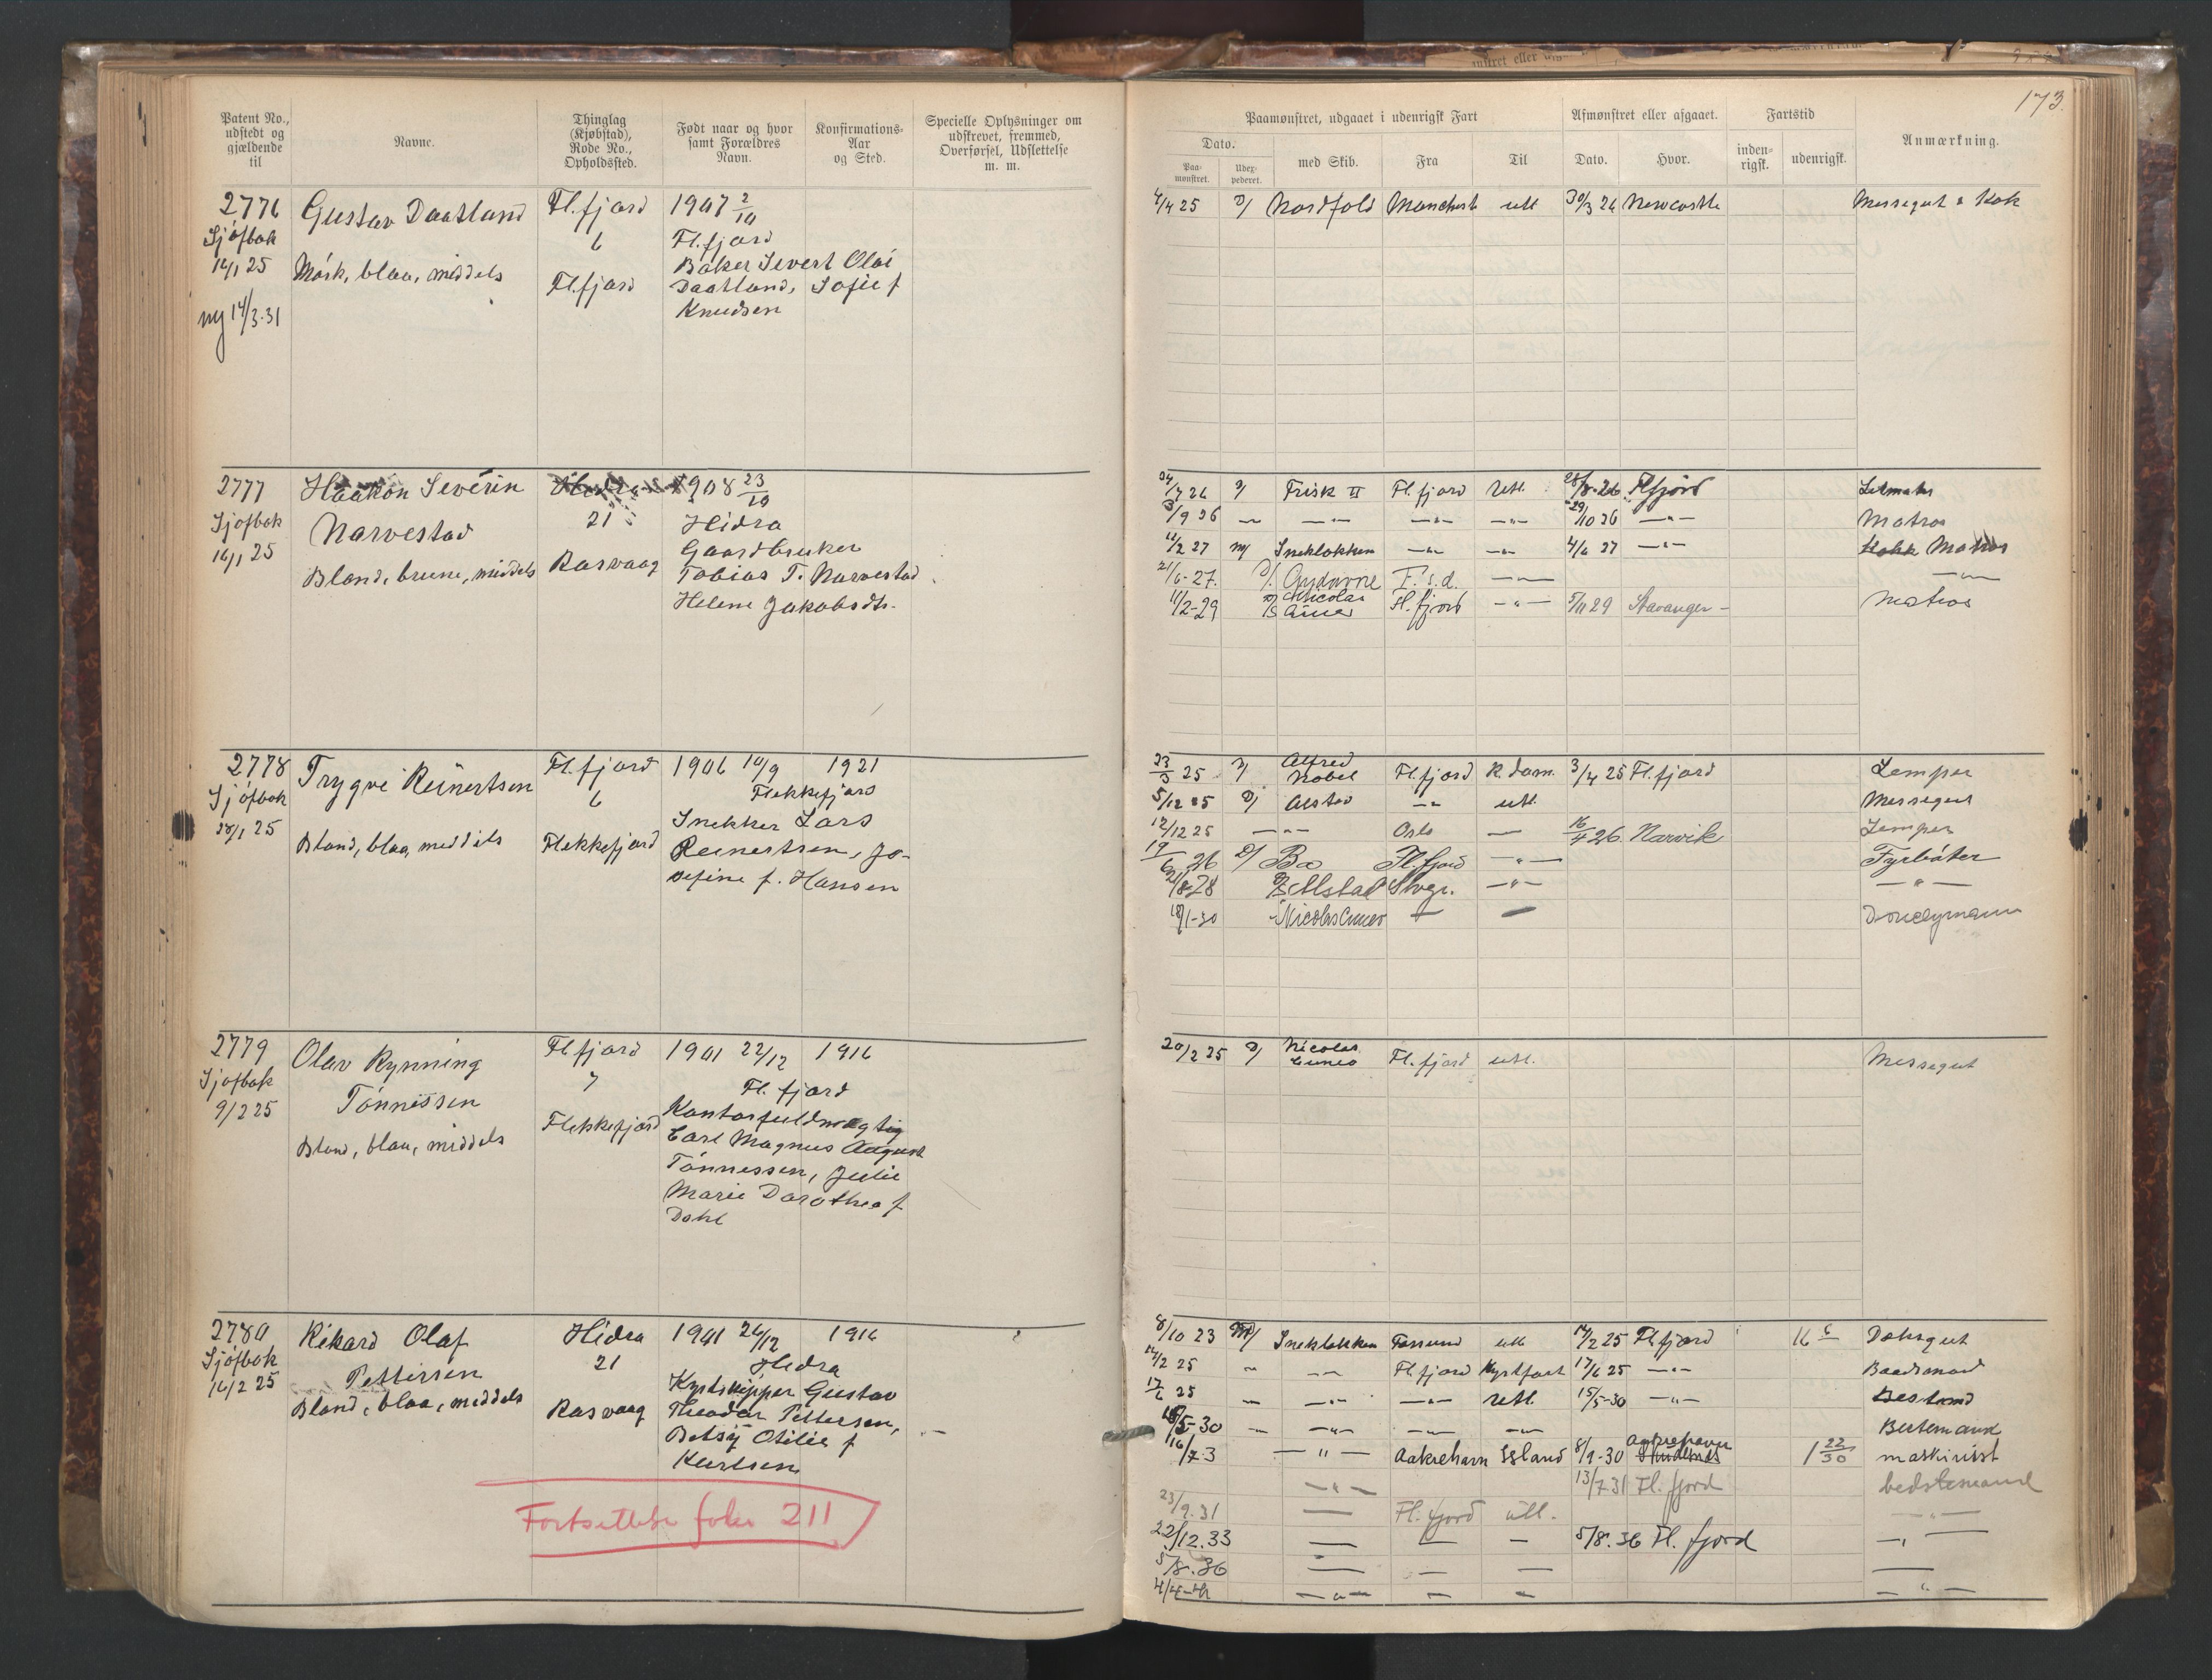 173.
Patent No., udstedt og gjældende til
Navne.
Thinglag (Kjøbstad), Rode No., Opholdssted.
Født naar og hvor samt Forældres Navn.
Konfirmations-Aar og Sted.
Specielle Oplysninger om udskrevet, fremmed, Overførsel, Udslettelse m. m.
Paamønstret, udgaaet i udenrigsk Fart
Dato.
Paamønstret.
Udexpederet.
med Skib.
Fra
Til
Afmønstret eller afgaaet.
Dato.
Hvor.
Fartstid
indenrigsk.
udenrigsk.
Anmærkning.
2776 Gustav Daatland Fl.fjord 1907 2/10
Sjøfbok 6 Fl.fjord
14/1 25 Mørk, blaa, middels Fl.fjord Baker Severt Olai
Daatland, Sofie f
ny 14/3.31 Knudsen
4/4 25 D/ Nordfold Manchest utl 30/3 26 Newcastle Messegut & Kok
2777 Haakon Severin Hidra 1908 23/10
Sjøfbok Narvestad 21 Hidra
16/1 25 Gaardbruker
Blond, brune, middels Rasvaag Tobias T. Narvestad
Helene Jakobsdtr.
/7 26 D/ Frisk II Fl.fjord Utl. 28/8-26 Flfjord Letmatr
3/9 26 — — — — 29/10 26 — Matros
/2 27 M/ Sneklokken — — 4/6 27 — Kokk Matros
21/6-27. D/. F.s.d. — —
11/2-29 D/S Nicolas Cuneo Fl.fjord — 5/11 29 Stavanger — Matros
2778 Trygve Reinertsen Fl.fjord 1906 10/9 1921
Sjøfbok 6 Flekkefjord
28/1 25 Snekker Lars
Blond, blaa, middels Flekkefjord Reinertsen, Jo-
sefine f. Hansen
23/3 25 D/ Alfred Nobel Fl.fjord R.dam. 3/4 25 Fl.fjord Lemper
5/12 25 D/ Alstad — utl. Messegut
12/12 25 — Oslo — 16/4 26 Narvik Lemper
19/6 26 D/ Bo Fl.fjord — Fyrbøter
21/8-28 D/S Alstad Stvgr. — —
18/1-30 Nicolas Cuneo — — Donkeymann
2779 Olav Rynning Fl.fjord 1901 22/12 1916
Sjøfbok Tønnessen 7 Fl.fjord
9/2 25 Kontorfuldmægtig
Blond, blaa, middels Flekkefjord Carl Magnus August
Tønnessen, Julie
Marie Dorothea f
Dahl
20/2 25 D/ Nicolas Cuneo Fl.fjord utl. Messegut
2780 Rikard Olaf Hidra 1901 26/12 1916
Sjøfbok Pettersen 21 Hidra
14/2 25 Kystskipper Gustav
Blond, blaa, middels Rasvaag Theodor Pettersen,
Betsy Otilie f
Karlsen
Fortsettelse folio 211
8/10 23 M/ Sneklokken utl 14/2 25 Fl.fjord 16 Dæksgut
14/2 25 — — Fl.fjord Kystfart 17/6 25 — Baadsmand
17/6 25 — — — Utl. 15/5-30 — Bestmand
/5-30 — — — — Bestemann
16/7 3 — Aakrehavn Island 8/9-30 Aakrehavn 1 22/30 maskinist
— 13/7 31 Fl.fjord bedstemand
23/9.31 — Fl.fjord utl. —
22/12.33 — — — 5/8.36 Fl.fjord —
5/8.36 — — — —
4/4- — — — —